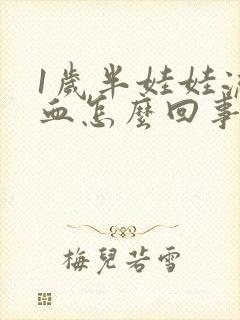 1歲半娃娃流
血怎麼回事
梅兒若雪